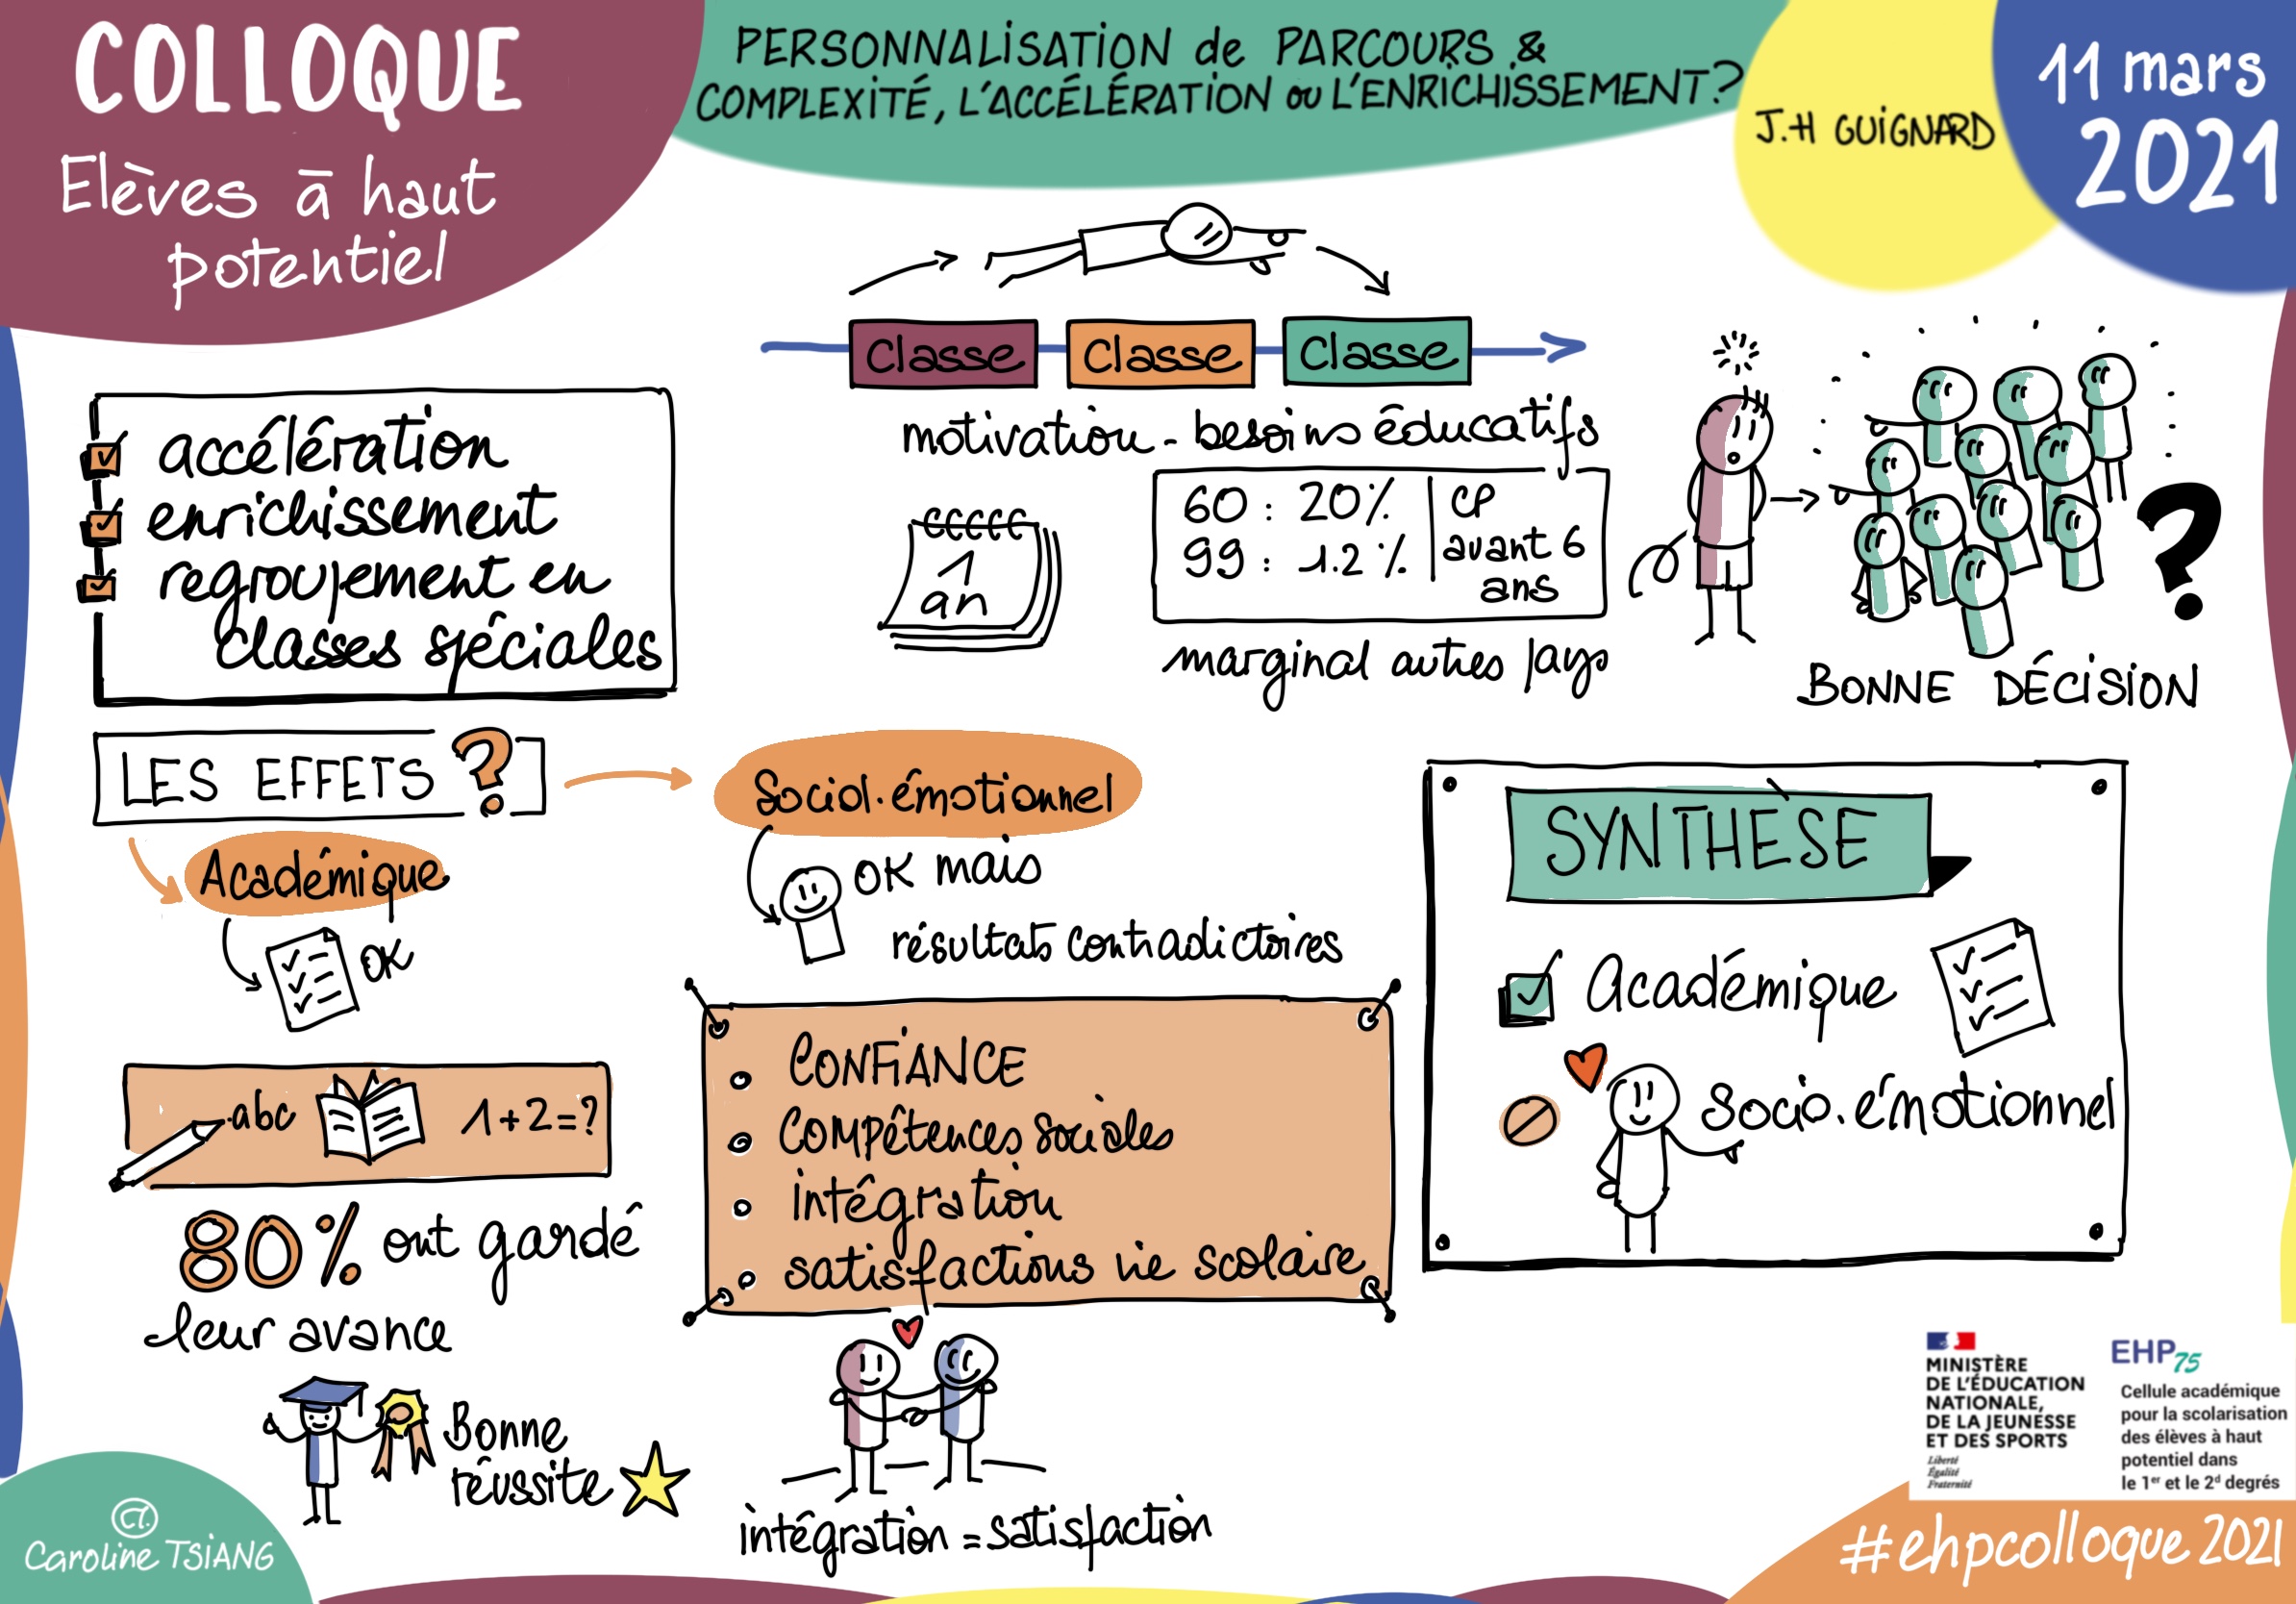 COLLOQUE
Elèves à haut
potentiel
PERSONNALISATION de PARCOURS &
COMPLEXITÉ, L'ACCÉLÉRATION ou L'ENRICHISSEMENT?
J.H GUIGNARD
11 mars
2021
accélération
enrichissement
regroupement en
classes spéciales
Classe
Classe
Classe
motivation - besoins éducatifs
1
an
60 : 20%
99 : 1.2 %
CP
avant 6
ans
marginal autres pays
?
BONNE DÉCISION
LES EFFETS ?
Académique
OK
abc
1+2=?
80% ont gardé
leur avance
Bonne
réussite
Sociol.émotionnel
OK mais
résultats contradictoires
CONFIANCE
Compétences sociales
intégration
satisfactions vie scolaire
intégration = satisfaction
SYNTHÈSE
Académique
Socio.émotionnel
MINISTÈRE
DE L'ÉDUCATION
NATIONALE,
DE LA JEUNESSE
ET DES SPORTS
Liberté
Égalité
Fraternité
EHP75
Cellule académique
pour la scolarisation
des élèves à haut
potentiel dans
le 1er et le 2d degrés
CT.
Caroline TSIANG
#ehpcolloque 2021